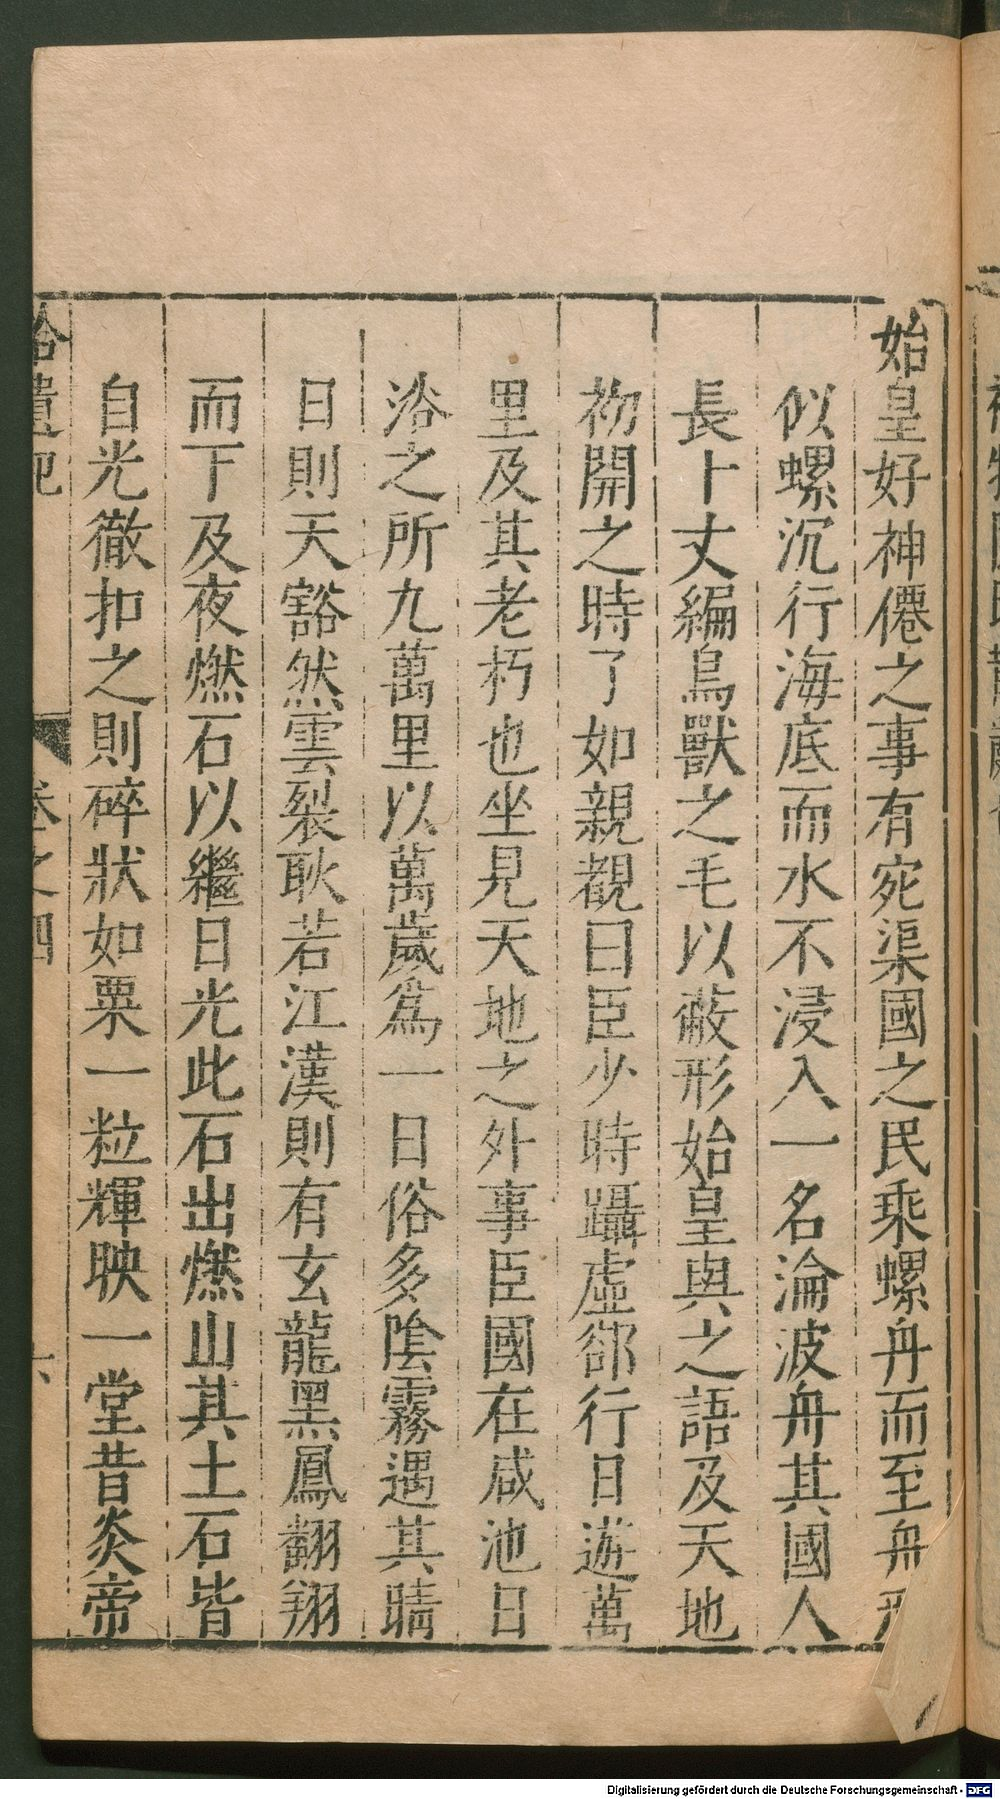 始皇好神僊之事有宛渠國之民乘螺舟而至舟形
似螺沉行海底而水不浸入一名淪波舟其國人
長十丈編鳥獸之毛以蔽形始皇與之語及天地
初開之時了如親覩曰臣少時躡虛卻行日遊萬
里及其老朽也坐見天地之外事臣國在咸池日
浴之所九萬里以萬歲爲一日俗多陰霧遇其晴
日則天豁然雲裂耿若江漢則有玄龍黑鳳翻翔
而下及夜燃石以繼日光此石出燃山其土石皆
自光徹扣之則碎狀如粟一粒輝映一堂昔炎帝
拾遺記 卷之四 六
Digitalisierung gefördert durch die Deutsche Forschungsgemeinschaft - DFG